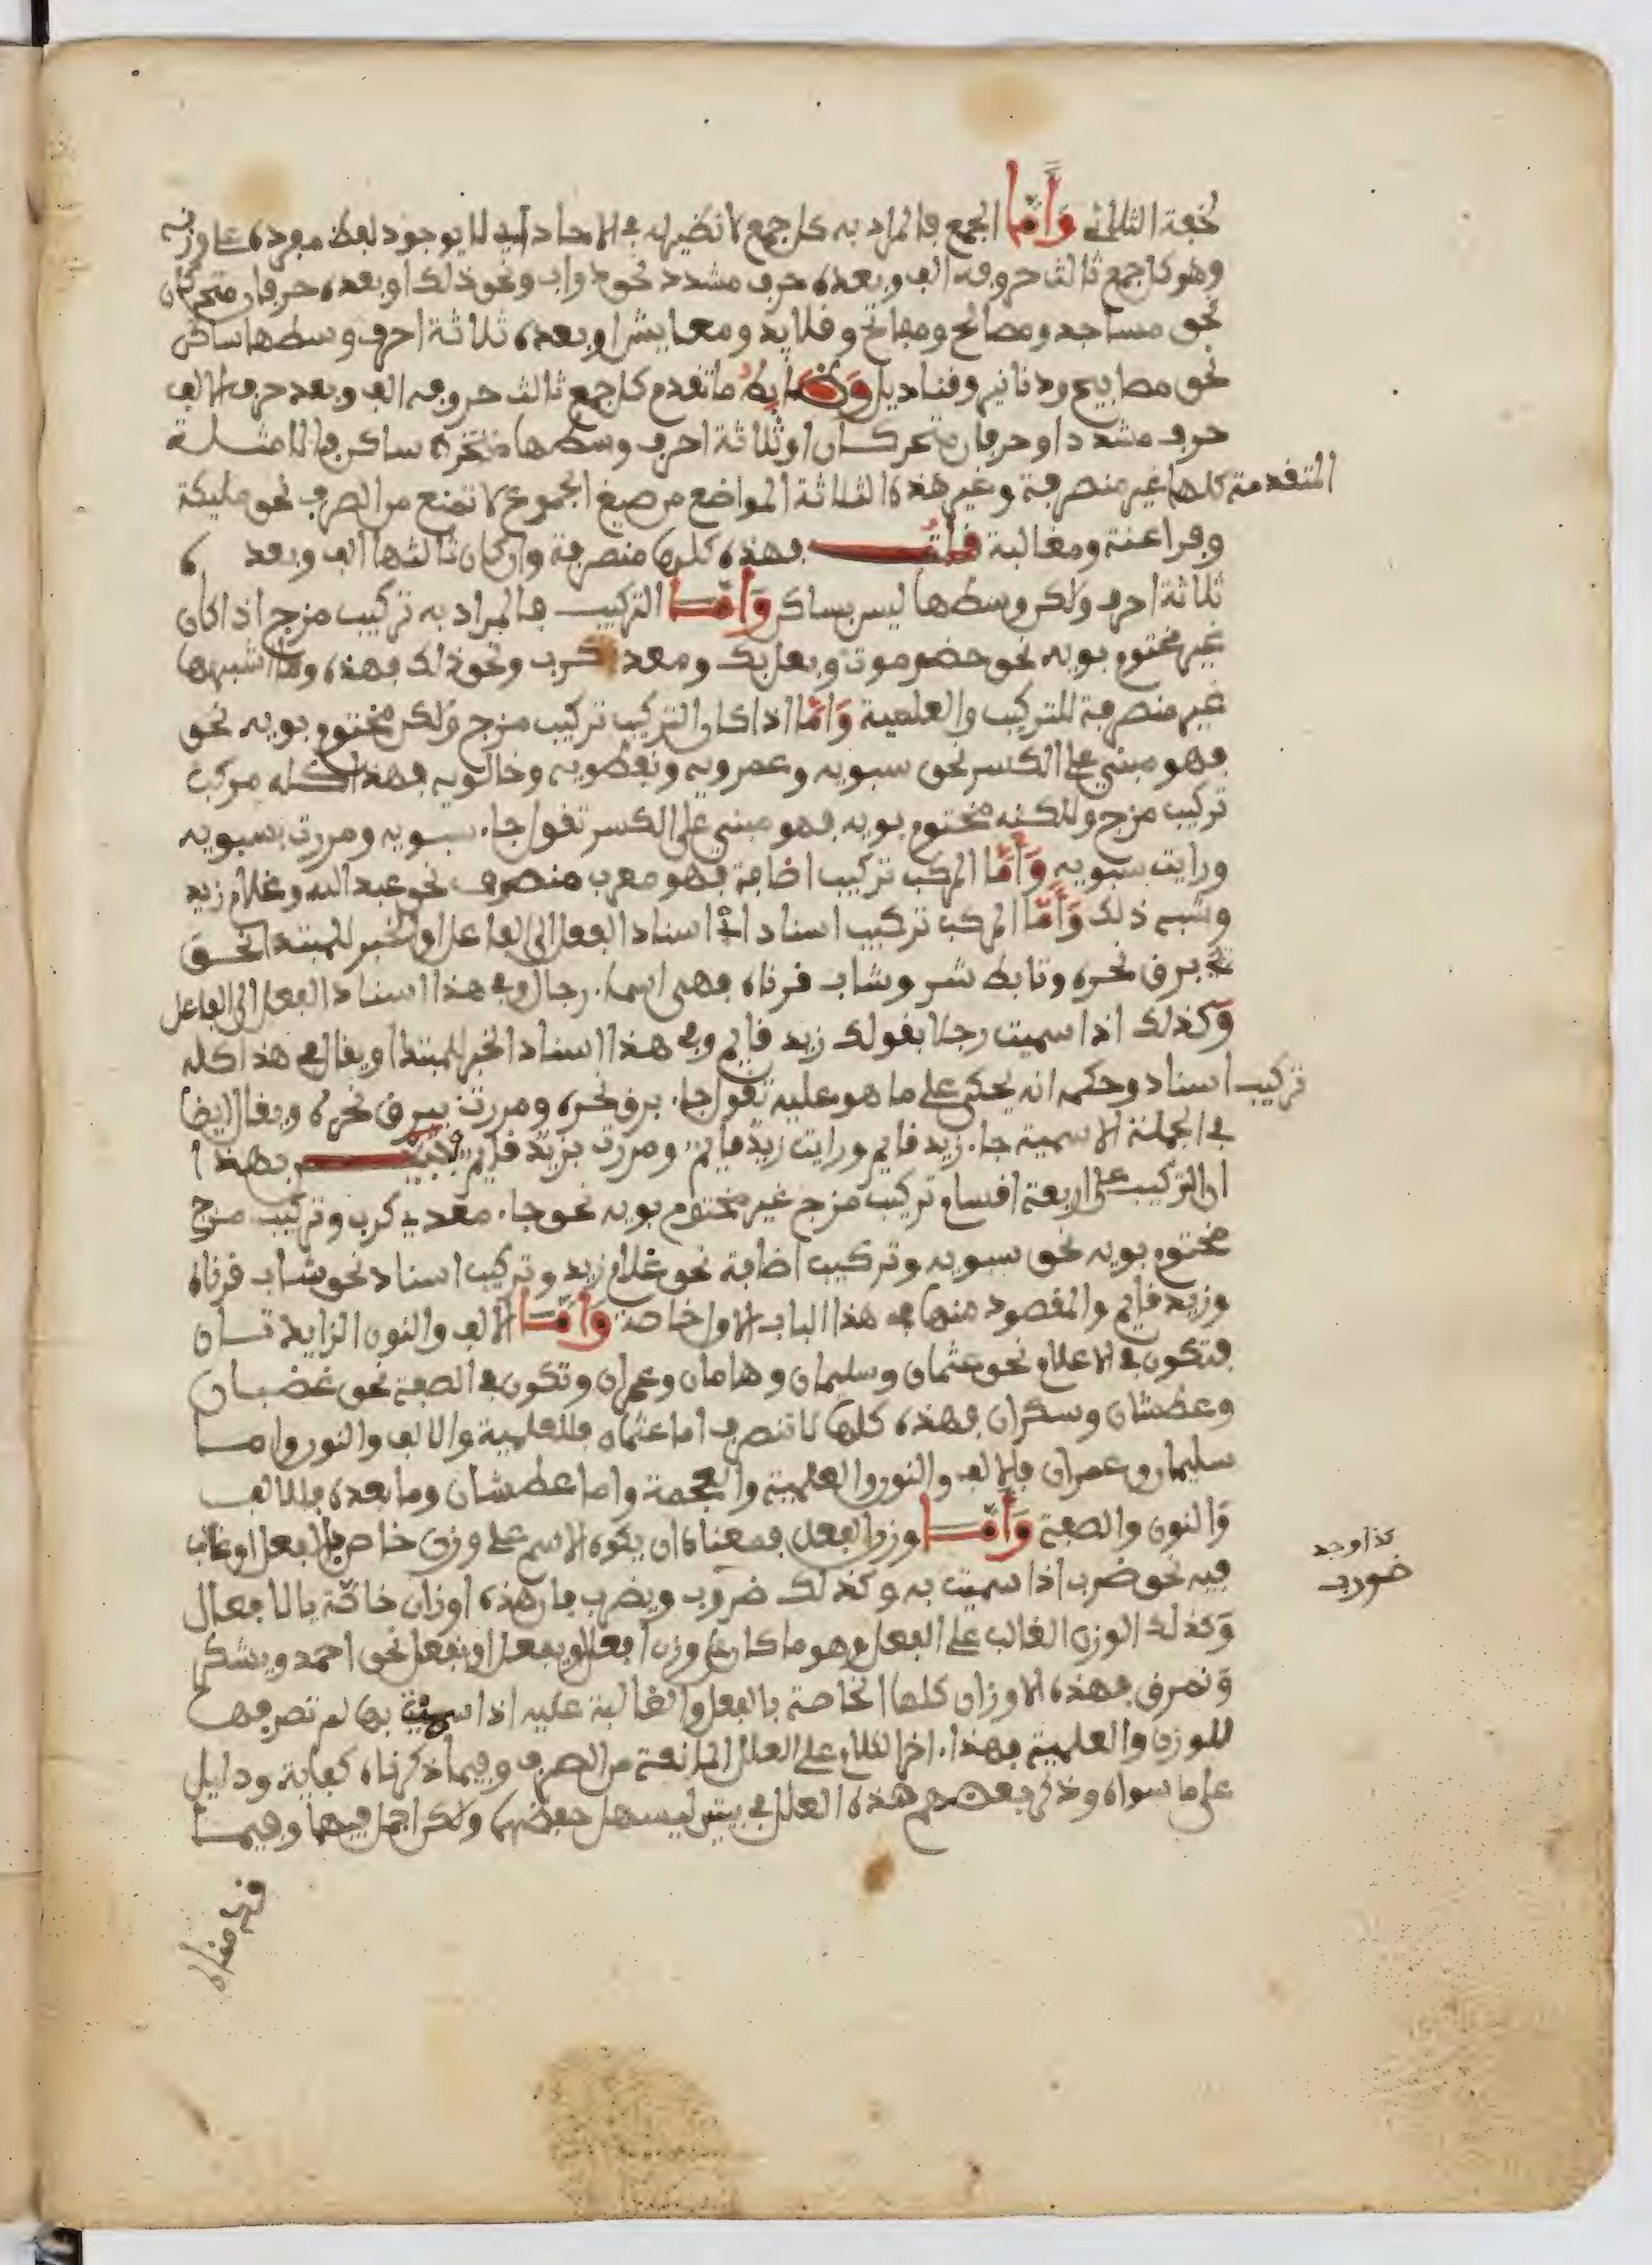 لخفة الثلاثي وَأَمَّا الجمع فالمراد به كل جمع لا نظير له في الاحاد اي لا يوجود لفظ مفرده على وزنه
وهو كل جمع ثالث حروفه الف وبعده حرف مشدد نحو دواب ونحو ذلك او بعده حرفان متحركان
نحو مساجد ومصالح ومفاتح وقلايد ومعايش او بعده ثلاثة احرف وسطها ساكن
نحو مصابيح ودنانير وقناديل وَضَابِطُ ما تقدم كل جمع ثالث حروفه الف وبعد حرف الالف
حرف مشدد او حرفان متحركان او ثلاثة احرف وسطها ساكن فالامثلة
المتقدمة كلها غير منصرفة وغير هذه الثلاثة المواضع من صيغ الجموع لا تمنع من الصرف نحو مليكة
وفراعنة ومغالبة قلت فهذه كلها منصرفة وان كان ثالثها الف وبعده
ثلاثة احرف ولكن وسطها ليس بساكن وَأَمَّا التركيب فالمراد به تركيب مزج اذا كان
غير مختوم بويه نحو حضرموت وبعلبك ومعد كرب ونحو ذلك فهذه وما اشبهها
غير منصرفة للتركيب والعلمية وَأَمَّا اذا كان التركيب تركيب مزج ولكن مختوم بويه نحو
فهو مبني على الكسر نحو سبويه وعمرويه ونفطويه وخالويه فهذا كله مركب
تركيب مزج ولكنه مختوم بويه فهو مبني على الكسر تقول جاء سبويه ومررت بسبويه
ورايت سبويه وَأَمَّا المركب تركيب اضافة فهو معرب منصرف نحو عبد الله وغلام زيد
وشبه ذلك وَأَمَّا المركب تركيب اسناد اي اسناد الفعل الى الفاعل او الخبر للمبتدا نحو
برق نحره وتابط شر وشاب قرناه فهي اسماء رجال وفي هذا اسناد الفعل الى الفاعل
وكذلك اذا سميت رجلا بقولك زيد قايم وفي هذا اسناد الخبر للمبتدا ويقال في هذا كله
تركيب اسناد وحكمه انه يحكى على ما هو عليه تقول جاء برق نحره ومررت ببرق نحره ويقال ايضا
في الجملة الاسمية جاء زيد قايم ورايت زيد قايم ومررت بزيد قايم فتبين بهذا
ان التركيب على اربعة اقسام تركيب مزج غير مختوم بويه نحو جاء معدي كرب وتركيب مزج
مختوم بويه نحو سبويه وتركيب اضافة نحو غلام زيد وتركيب اسناد نحو شاب قرناه
وزيد قايم والمقصود منها في هذا الباب الاول خاصة وَأَمَّا الالف والنون الزايدتان
فتكون في الاعلام نحو عثمان وسليمان وهامان وعمران وتكون في الصفة نحو غضبان
وعطشان وسكران فهذه كلها لا تنصرف اما عثمان فللعلمية والالف والنون واما
سليمان وعمران فللالف والنون والعلمية والعجمة واما عطشان وما بعده فللالف
والنون والصفة وَأَمَّا وزن الفعل فمعناه ان يكون الاسم على وزن خاص بالفعل او غالب
فيه نحو ضرب اذا سميت به وكذلك ضروب ويضرب فان هذه اوزان خاصة بالافعال
كذا وجد
ضورب
وكذلك الوزن الغالب على الفعل وهو ما كان على وزن افعل او يفعل او نفعل نحو احمد ويشكر
ونمرق فهذه الاوزان كلها الخاصة بالفعل والغالبة عليه اذا سميت بها لم تصرفها
للوزن والعلمية فهذا اخر الكلام على العلل المانعة من الصرف وفيما ذكرناه كفاية ودليل
على ما سواه وذكر بعضهم هذه العلل في بيتين ليسهل حفظها ولكن اجمل فيها وفيما